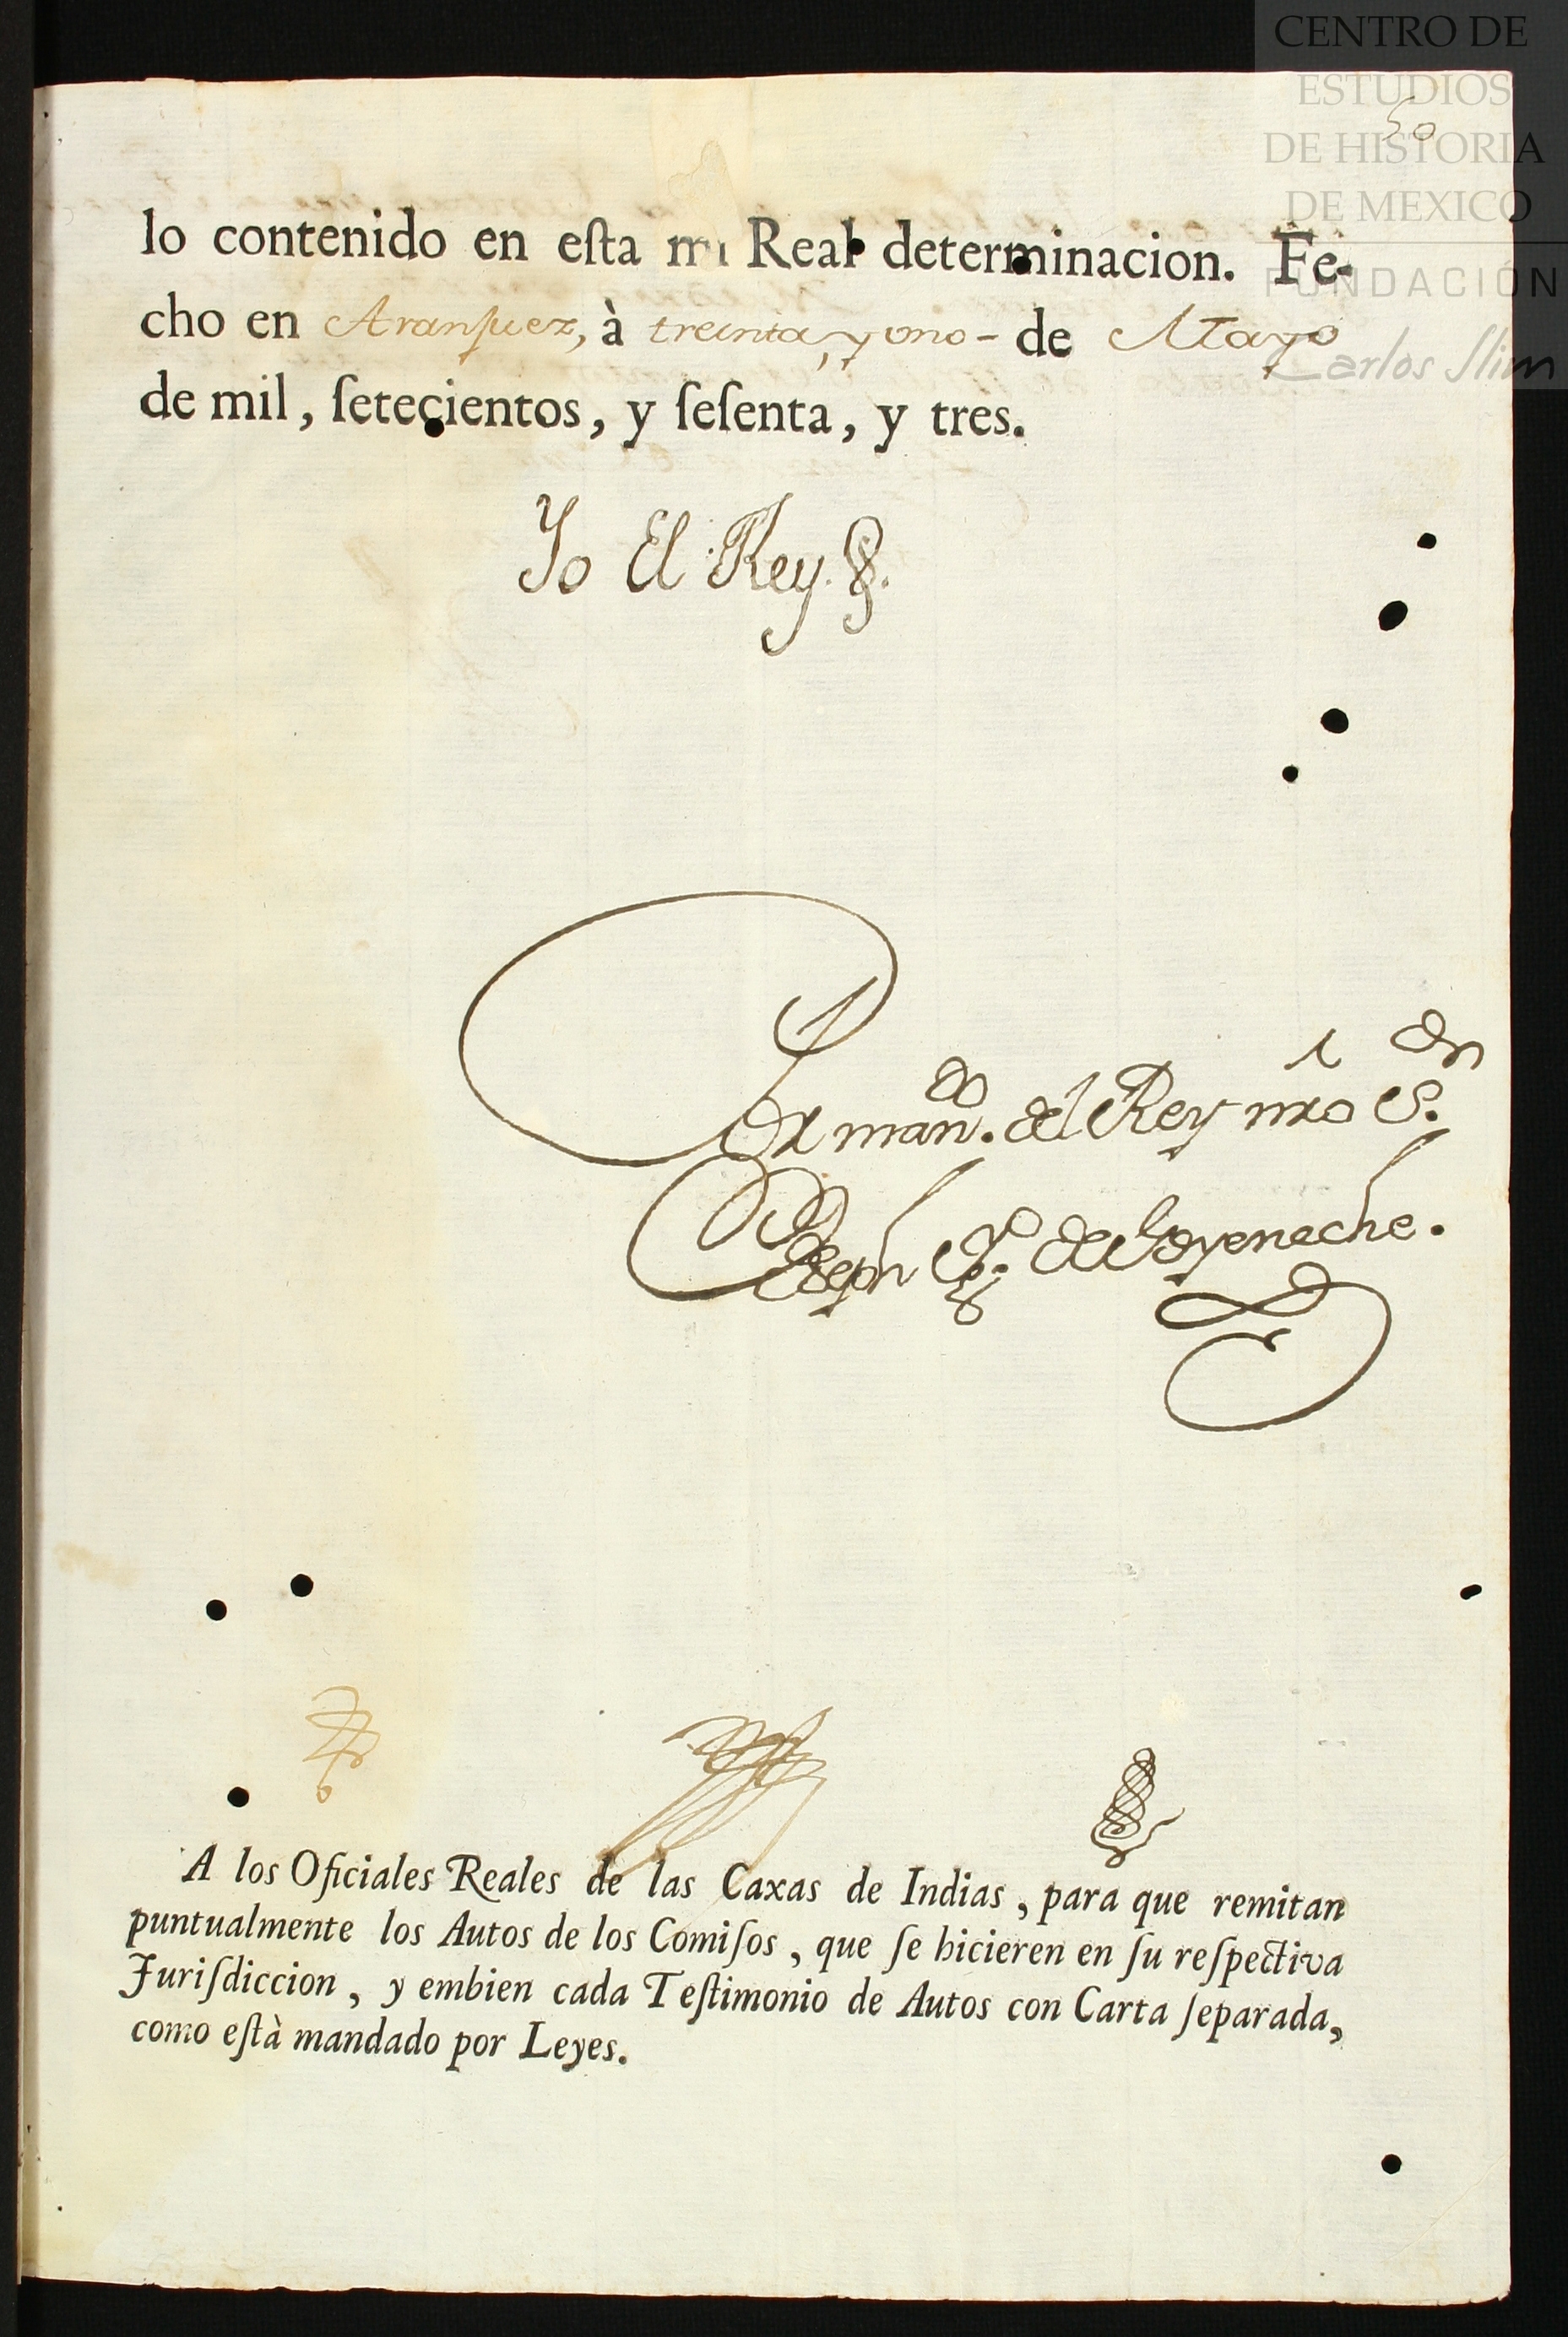 CENTRO DE
ESTUDIOS
DE HISTORIA
DE MEXICO
FUNDACIÓN
Carlos Slim
50
lo contenido en eſta mi Real determinacion. Fe-
cho en Aranjuez, à treinta, y uno - de Mayo
de mil, ſetecientos, y ſeſenta, y tres.
Yo El Rey.
Por man.do del Rey nro S.or
Joseph Ign.o de Goyeneche.
A los Oficiales Reales de las Caxas de Indias, para que remitan
puntualmente los Autos de los Comiſos, que ſe hicieren en ſu reſpectiva
Juriſdiccion, y embien cada Teſtimonio de Autos con Carta ſeparada,
como eſtà mandado por Leyes.